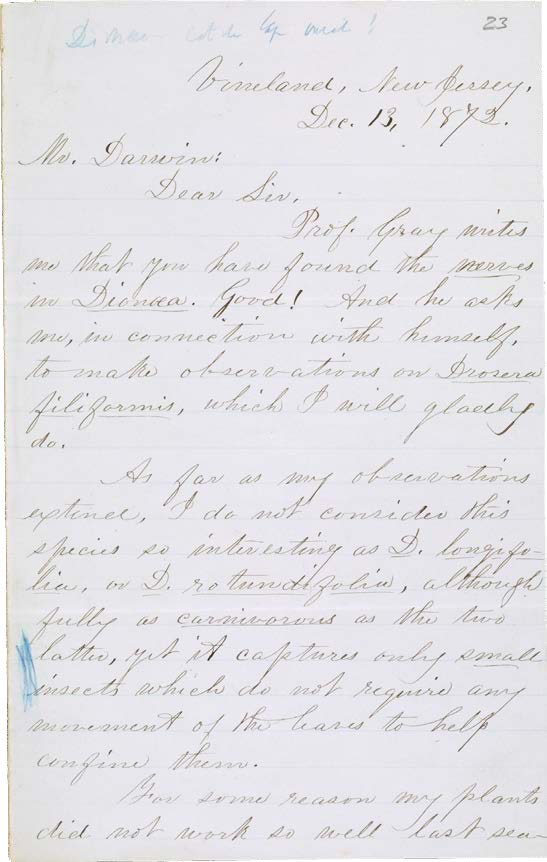 23
Vineland, New Jersey,
Dec. 13, 1872.
Mr. Darwin:
Dear Sir,
Prof. Gray writes
me that you have found the nerves
in Dionæa. Good! And he asks
me, in connection with himself,
to make observations on Drosera
filiformis, which I will gladly
do.
As far as my observations
extend, I do not consider this
species so interesting as D. longifo-
lia, or D. rotundifolia, although
fully as carnivorous as the two
latter, yet it captures only small
insects which do not require any
movement of the leaves to help
confine them.
For some reason my plants
did not work so well last sea-